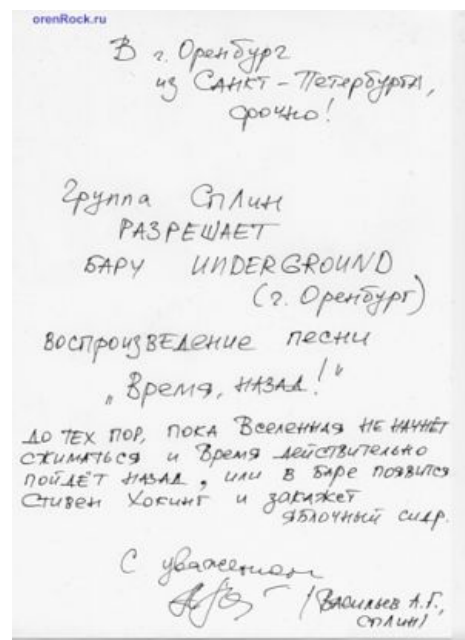 orenRock.ru
В г. Оренбург
из Санкт-Петербурга,
срочно!
Группа Сплин
РАЗРЕШАЕТ
БАРУ UNDERGROUND
(г. Оренбург)
воспроизведение песни
„Время, назад!"
ДО ТЕХ ПОР, ПОКА Вселенная НЕ НАЧНЁТ
сжиматься и Время действительно
пойдёт назад, или в баре появится
Стивен Хокинг и закажет
яблочный сидр.
С уважением
/Васильев А.Г.,
СПЛИН/